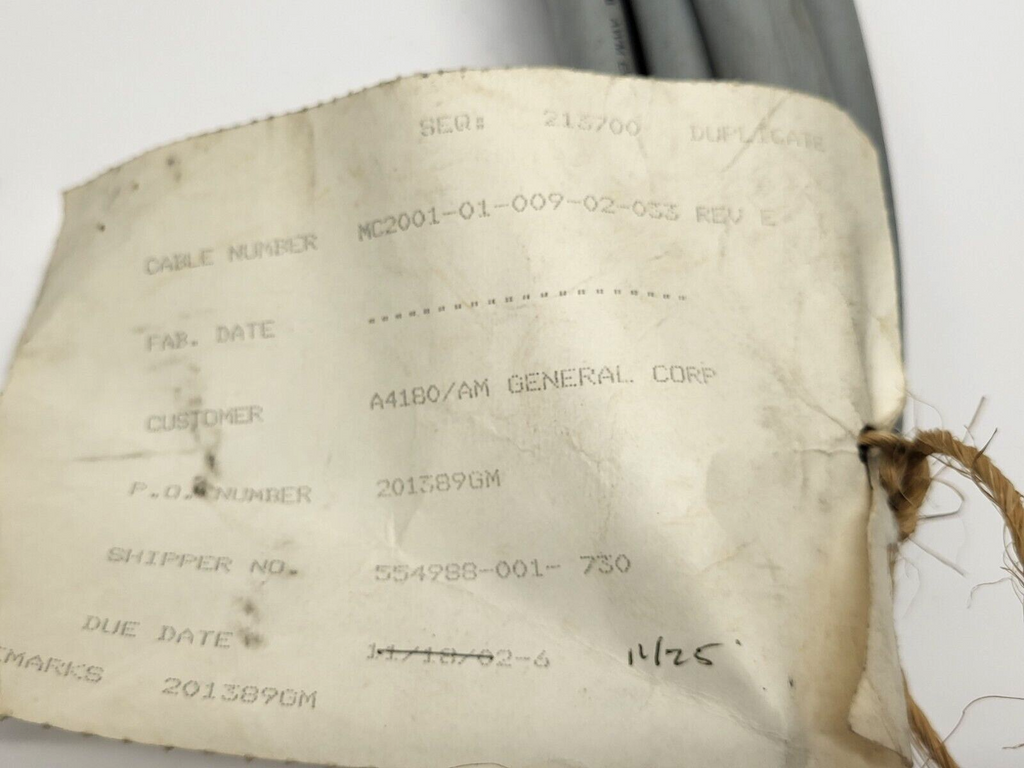 SEQ: 213700 DUPLICATE
CABLE NUMBER MC2001-01-009-02-033 REV E
FAB. DATE ------------------
CUSTOMER A4180/AM GENERAL CORP
P.O. NUMBER 201389GM
SHIPPER NO. 554988-001- 730
DUE DATE 11/18/02-6 11/25
EMARKS 201389GM